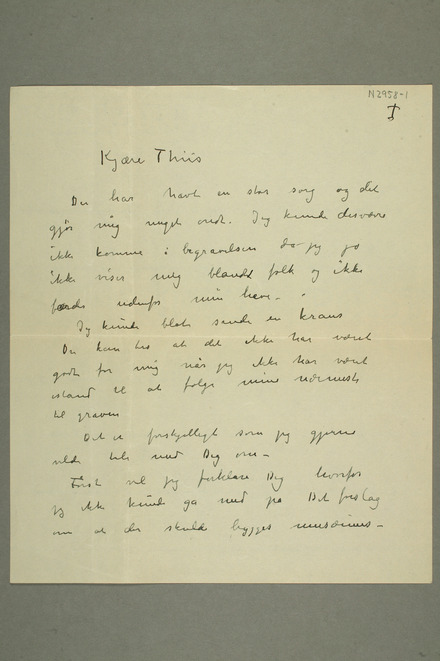 N 2958-1
I
Kjære Thiis
Du har havt en stor sorg og det
gjør mig meget ondt. Jeg kunde desværre
ikke komme i begravelsen da jeg jo
ikke viser mig blandt folk og ikke
færdes udenfor min have. –
Jg kunde blot sende en krans
Du kan tro at det ikke har været
godt for mig når jeg ikke har været
istand til at følge mine nærmeste
til graven
Det er forskjelligt som jeg gjerne
vilde tale med Dig om –
Først vil jeg forklare Dig hvorfor
jeg ikke kunde gå med på Det forslag
om at der skulde bygges